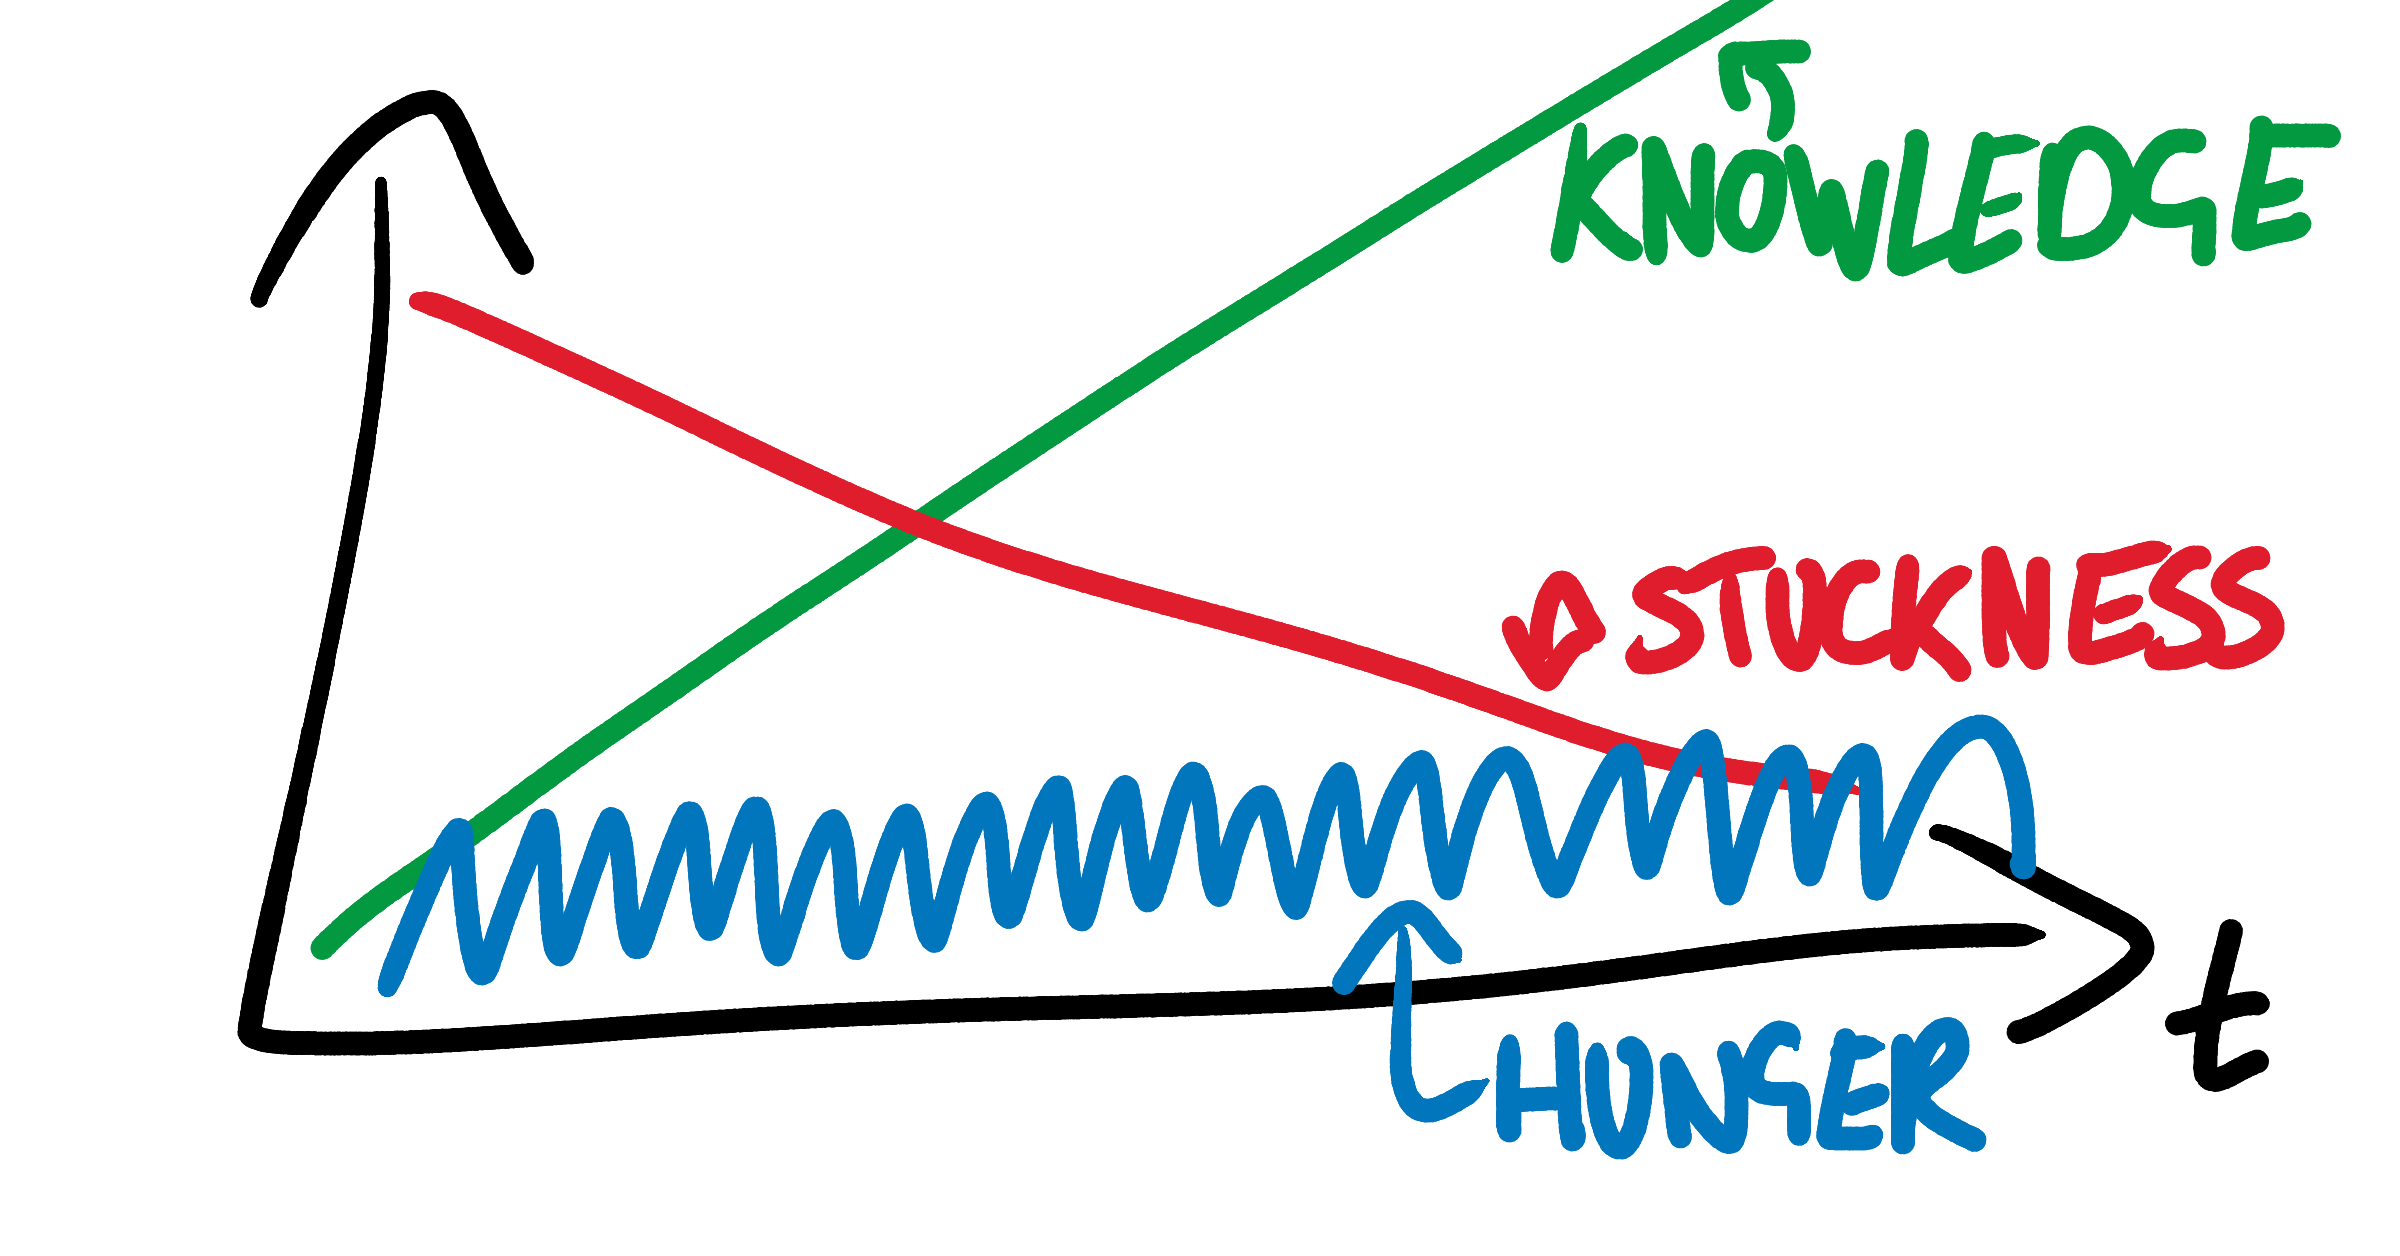 KNOWLEDGE
STUCKNESS
t
HUNGER